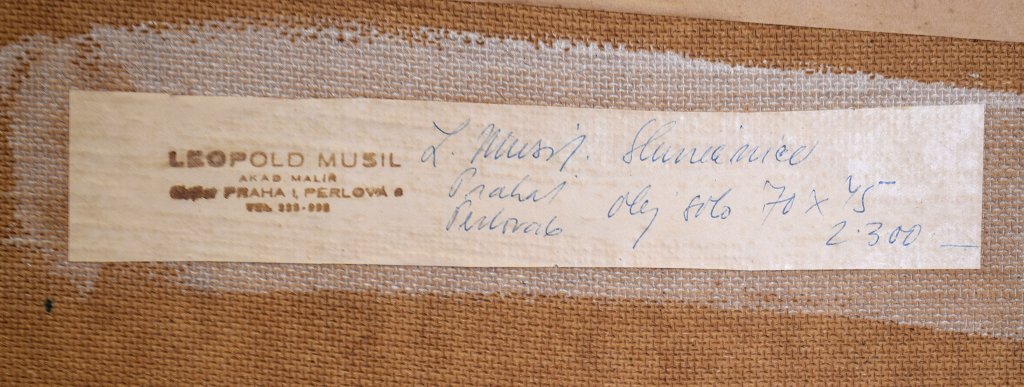 LEOPOLD MUSIL
AKAD MALÍŘ
PRAHA 1, PERLOVÁ 6
TEL.
L. Musil. Slunečnice
Praha 1
Perlová 6
olej solo 70 x 45
2.300.—